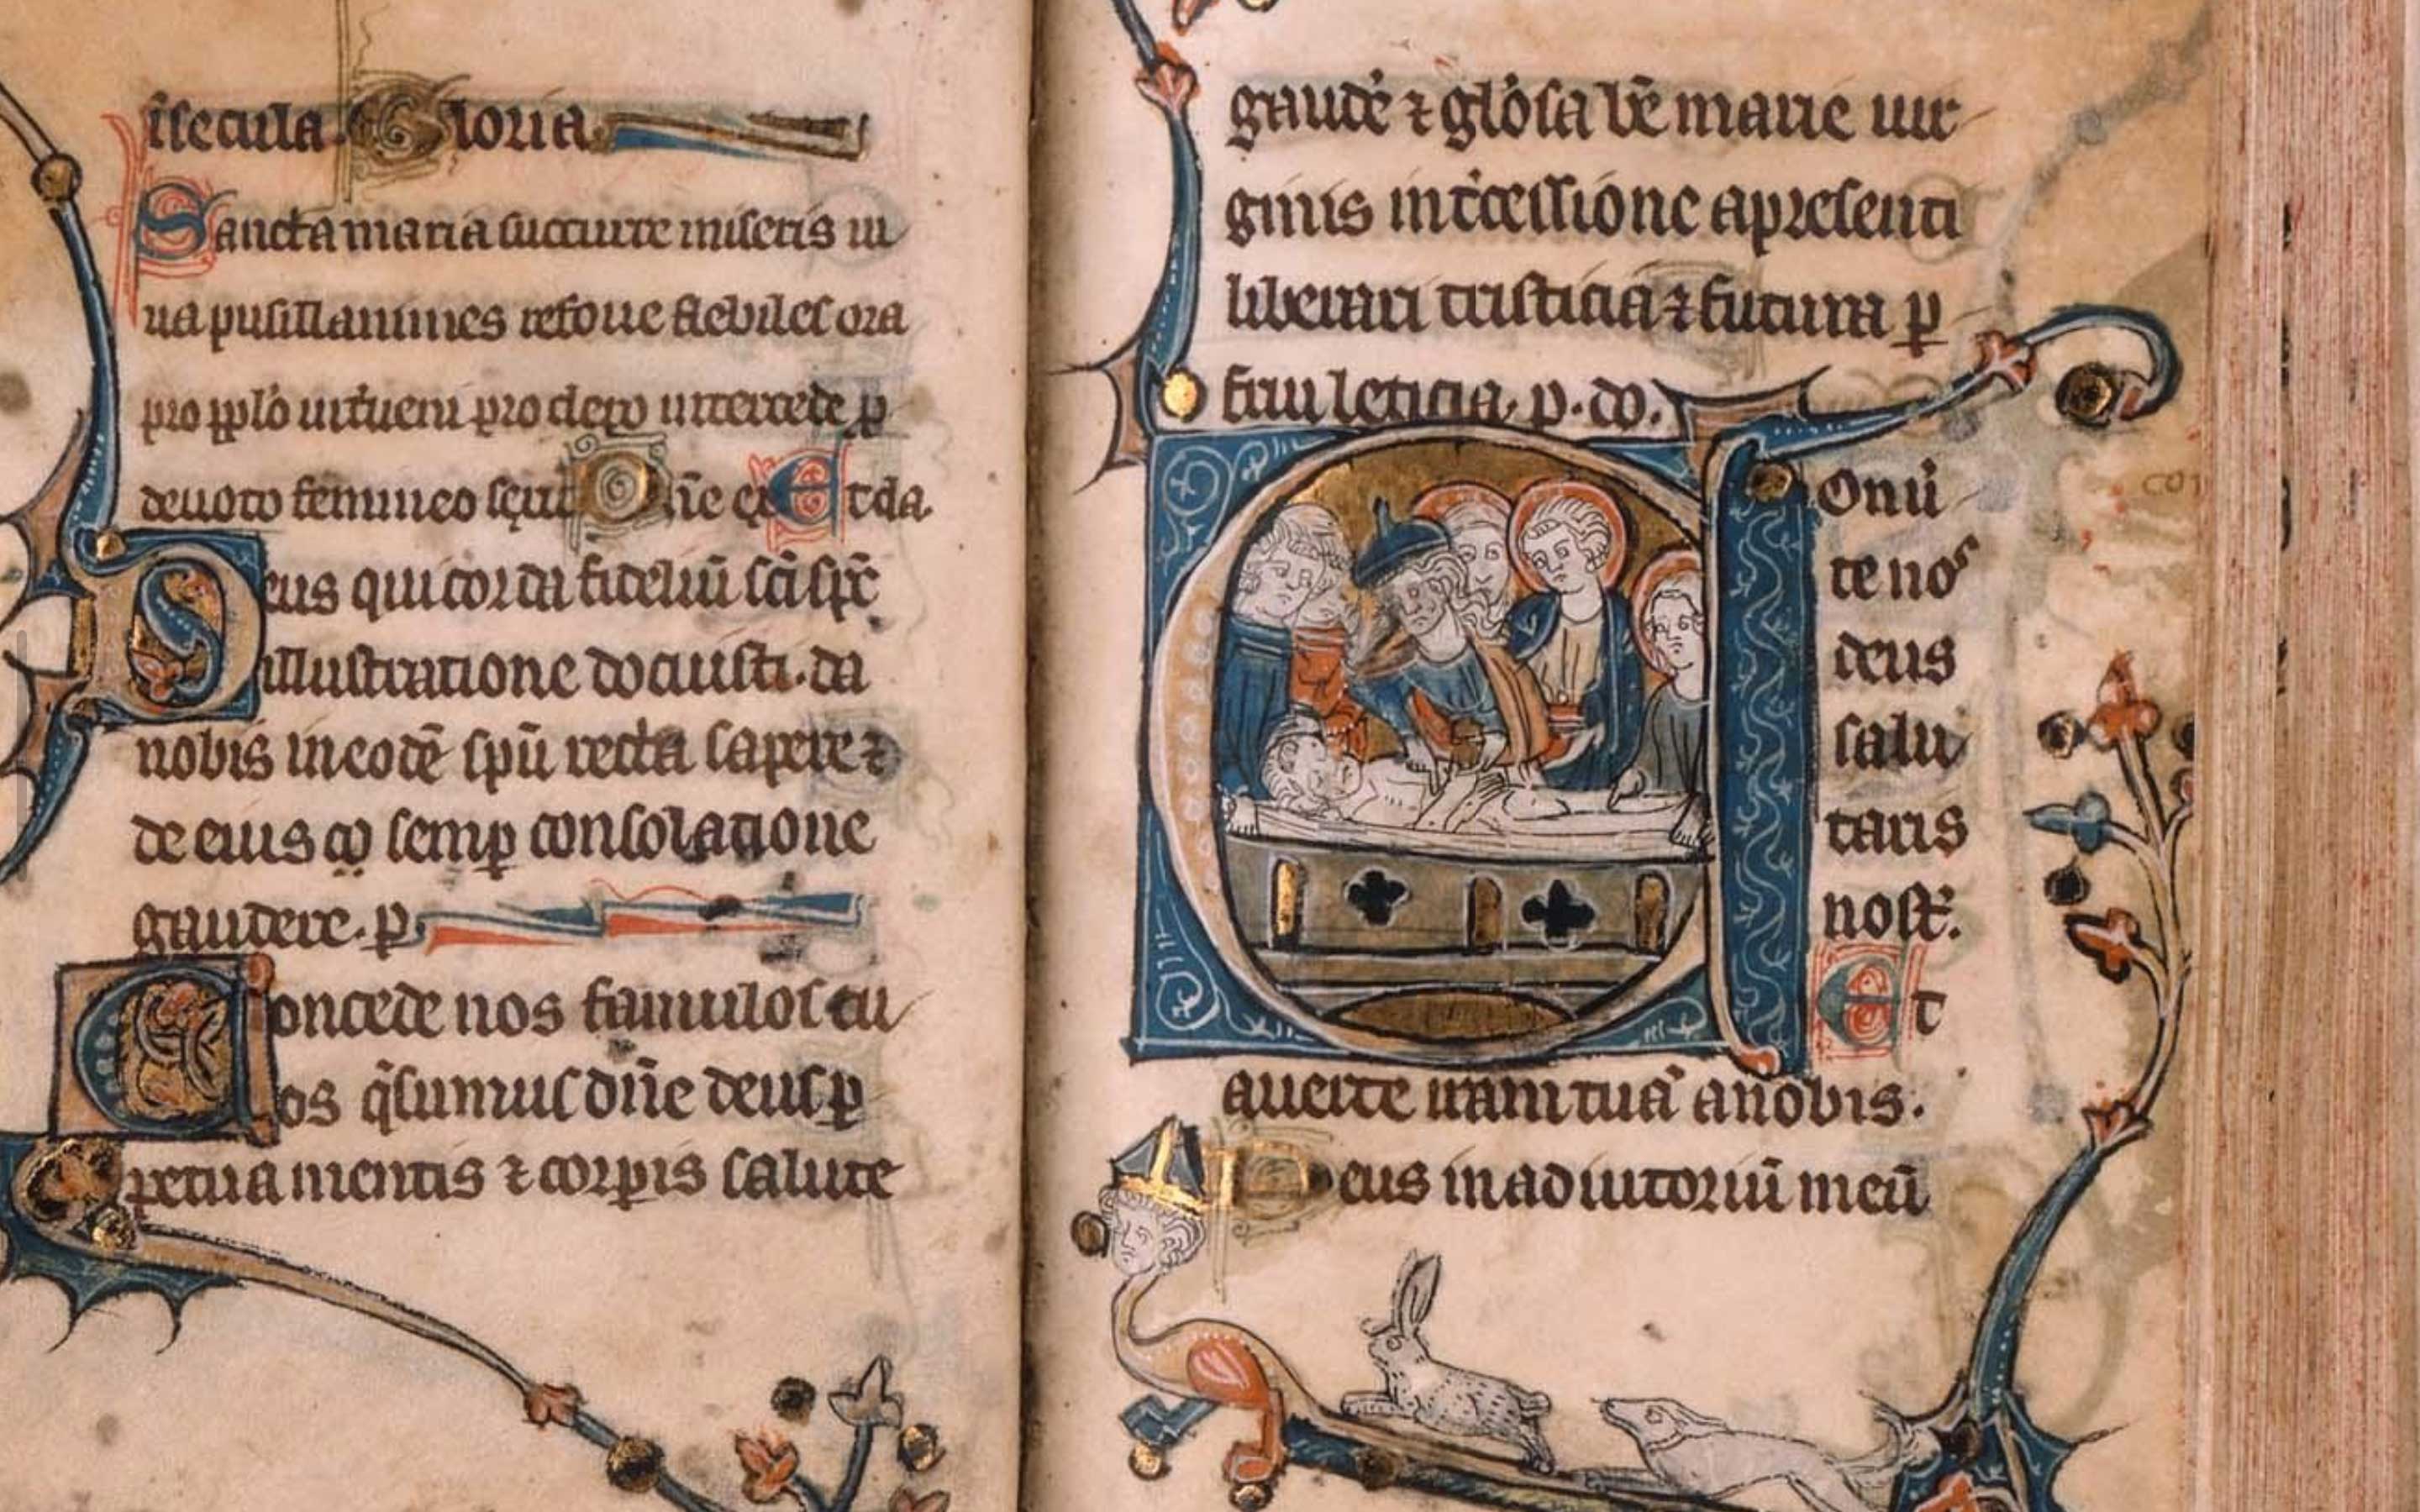 ı̄secula. Gloria
Sancta maria succurre miseris iu
ua pusillanimes refoue flebiles ora
pro pplo̓ int̓ueni pro clero intercede ꝑ
deuoto femineo sexu Dn̄e ex Et cla.
Deus qui corda fideliū sc̄i sp̄c
illustratione docuisti. da
nobis in eodē spū recta sapere ⁊
de eius ꝯ semꝑ consolatione
gaudere. ꝑ
Concede nos famulos tu
os q̄sumus dn̄e deus ꝑ
petua mentis ⁊ corꝑis salute
gaudē ⁊ glo̓sa bē marie uir
ginis int̓cessione a presenti
liberari tristicia ⁊ futura ꝑ
frui leticia. p. do.
Conu̓
te nos
deus
salu
taris
nost̓.
Et
auerte iram tuā a nobis.
Deus in adiutoriū meū